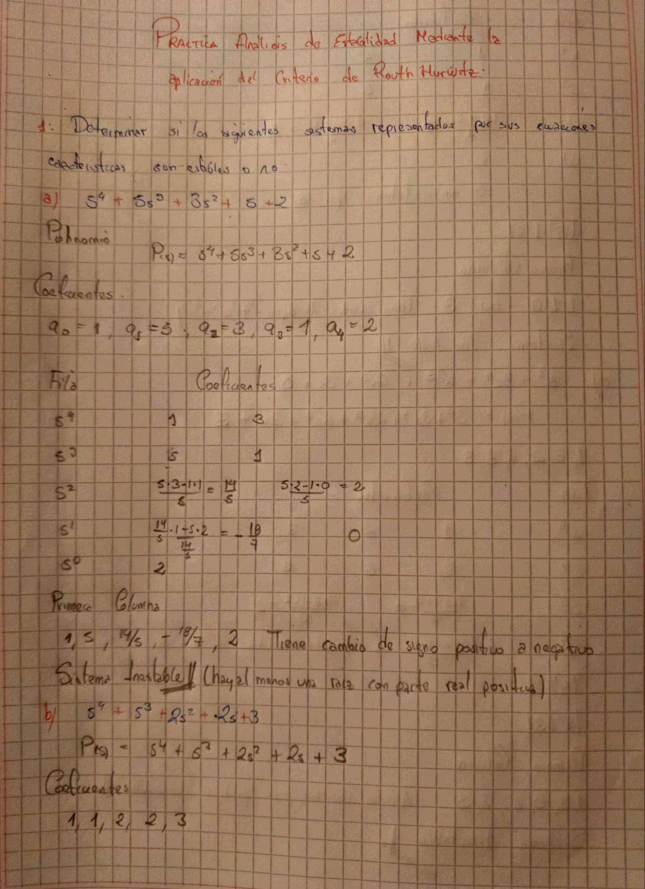 PRACTICA Análisis de Estabilidad Mediante la
aplicación del Criterio de Routh Hurwitz.
1: Determinar si los siguientes sistemas representados por sus ecuaciones
características son estables o no
a) s⁴ + 5s³ + 3s² + s + 2
Polinomio
P(s) = s⁴ + 5s³ + 3s² + s + 2
Coeficientes.
a₀ = 1, a₁ = 5, a₂ = 3, a₃ = 1, a₄ = 2
Fila Coeficientes
s⁴ 1 3
s³ 5 1
s² (5·3-1·1)/5 = 14/5 (5·2-1·0)/5 = 2
s¹ (14/5·1-5·2)/(14/5) = -18/7 0
s⁰ 2
Primera Columna
1, 5, 14/5, -18/7, 2 Tiene cambio de signo positivo a negativo
Sistema Inestable// (hay al menos una raíz con parte real positiva)
b) s⁴ + s³ + 2s² + 2s + 3
P(s) = s⁴ + s³ + 2s² + 2s + 3
Coeficientes
1, 1, 2, 2, 3